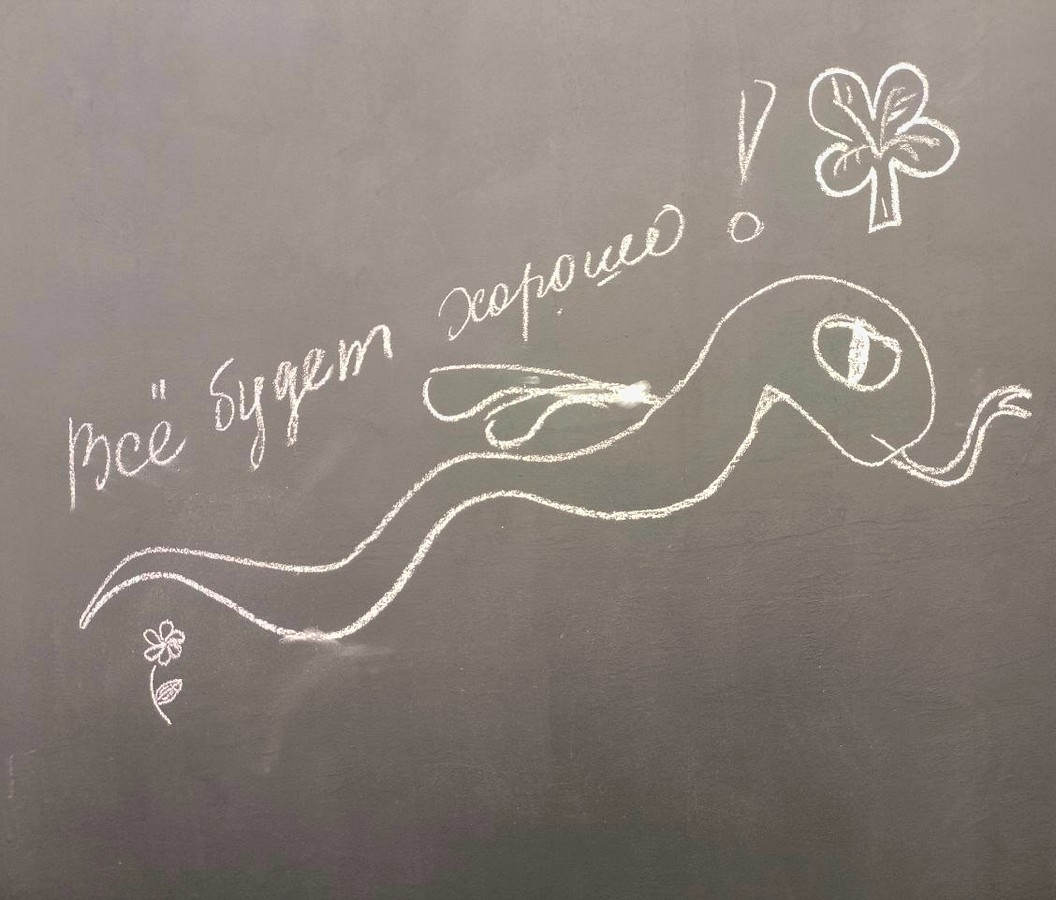 Всё будет хорошо!